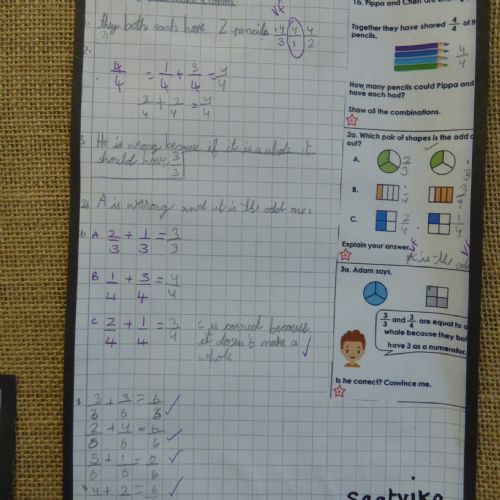 They both each have 2 pencils
4/4 = 1/4 + 3/4 = 4/4
2/4 + 2/4 = 4/4
He is wrong because if it is a whole it
should have 3/3
A is wrong and it is the odd one.
A 2/3 + 1/3 = 3/3
B 1/4 + 3/4 = 4/4
C 2/4 + 1/4 = 3/4 C is correct because
it dosen't make a
whole
3 + 3 = 6
2 + 4 = 6
5 + 1 = 6
4 + 2 = 6
1a. Pippa and
Together they have shared 4/4 of
pencils.
4/4
How many pencils could Pippa and
have each had?
Show all the combinations.
2a. Which pair of shapes is the odd
out?
A. 2/3
B. 1/4 3/4
C. 2/4 1/4
Explain your answer.
is the odd
3a. Adam says,
3/3 and 3/4 are equal to a
whole because they bo
have 3 as a numerator.
Is he correct? Convince me.